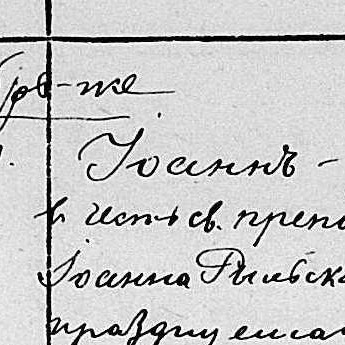 -же
Іоаннъ -
в честь св. препо
Іоанна Рыльска
празднуемаг